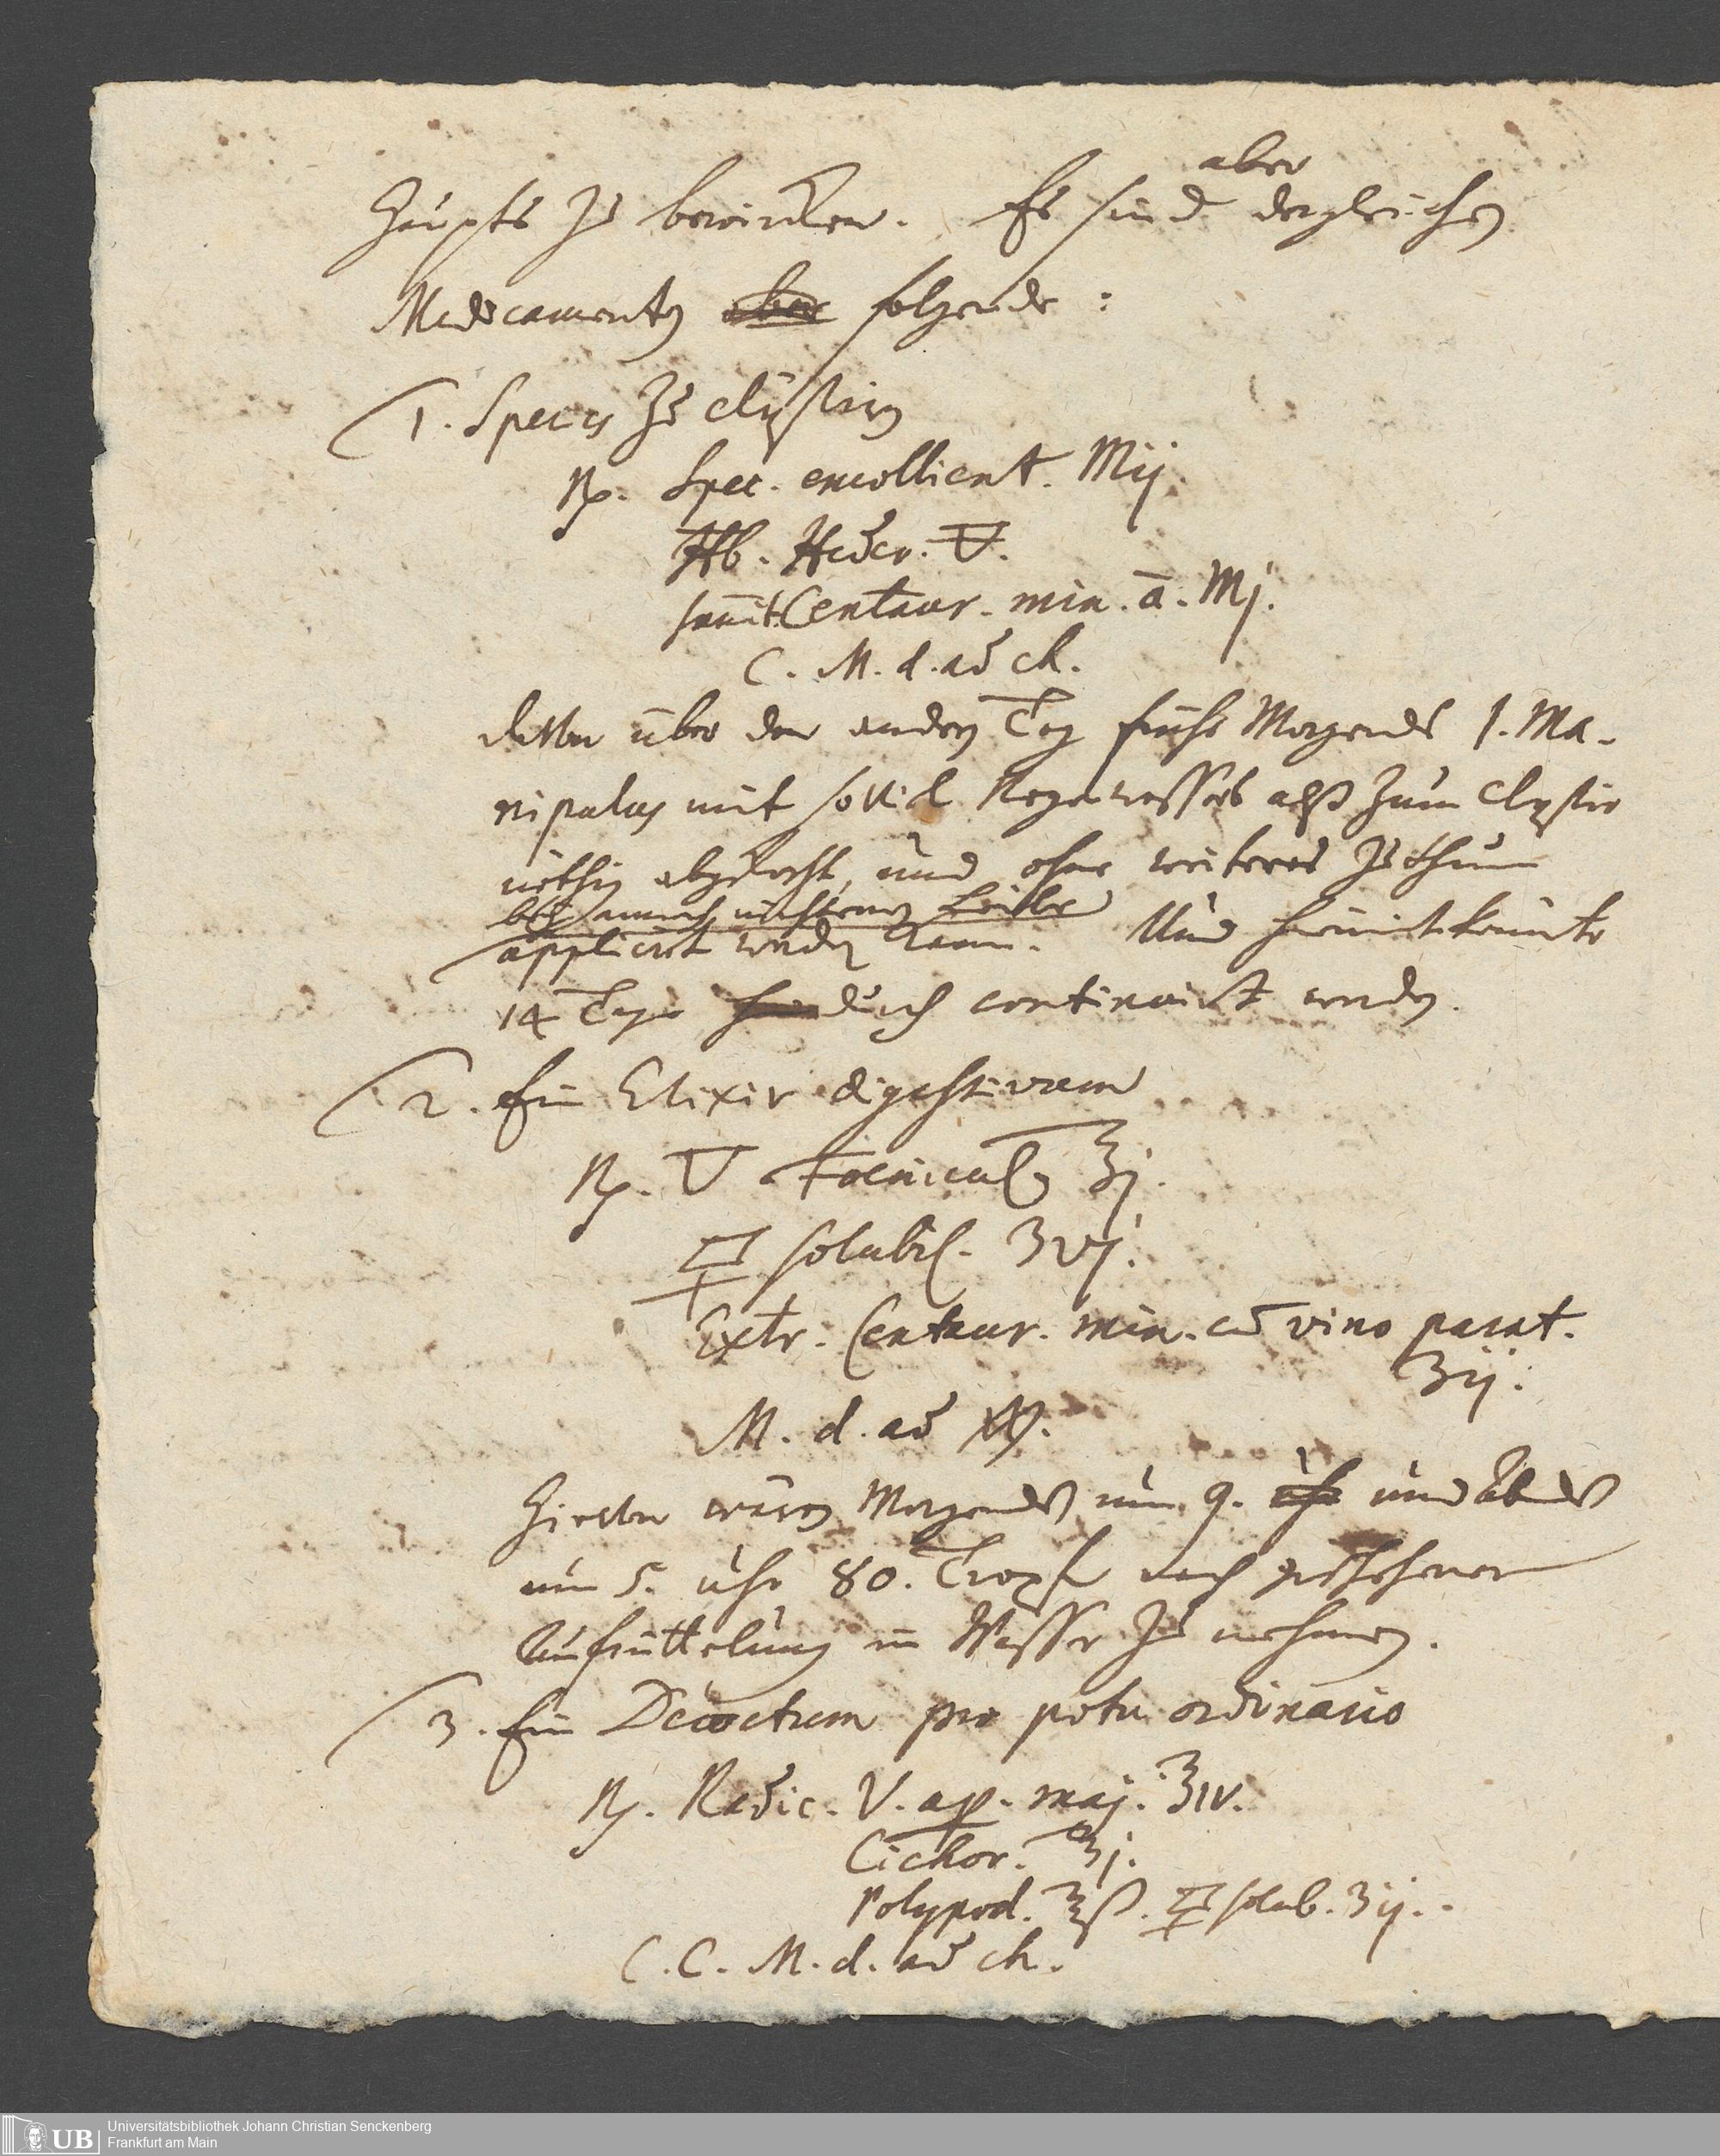 aber
Haupts zu bewircken. Es sind dergleichen
Medicamenten aber folgende:
1. Species zu clystiren
Rp. Spec. emollient. Mij.
Hb. Heder. 🜃.
summit. Centaur. min. ā. Mj.
C. M. d. ad ch.
davon über den andern Tag frühe Morgends 1. Ma-
nipulus mit soviel Regenwassers alß zum Clystir
nöthig abgekocht, und ohne weiteres zuthun
bey annoch nüchternen Leibe
applicirt werden kann. Und hiemit könnte
14 Tage durch continuirt werden.
2. Ein Elixir digestivum
Rp. ▽ Foenicul. ℥j.
solubil. ʒvj.
Extr. Centaur. min. cū vino parat.
ʒij.
M. d. ad
Hievon wären Morgends um 9. Uhr und Abends
um 5. Uhr 80. Tropfen nach geschehener
Aufrüttelung in Wasser zu nehmen.
3. Ein Decoctum pro potu ordinario
Rp. Radic. V. ap. maj. ℥iv.
Cichor. ℥j.
Polypod. ℥ß. solub. ʒij.
C. C. M. d. ad ch.
Universitätsbibliothek Johann Christian Senckenberg
UB Frankfurt am Main